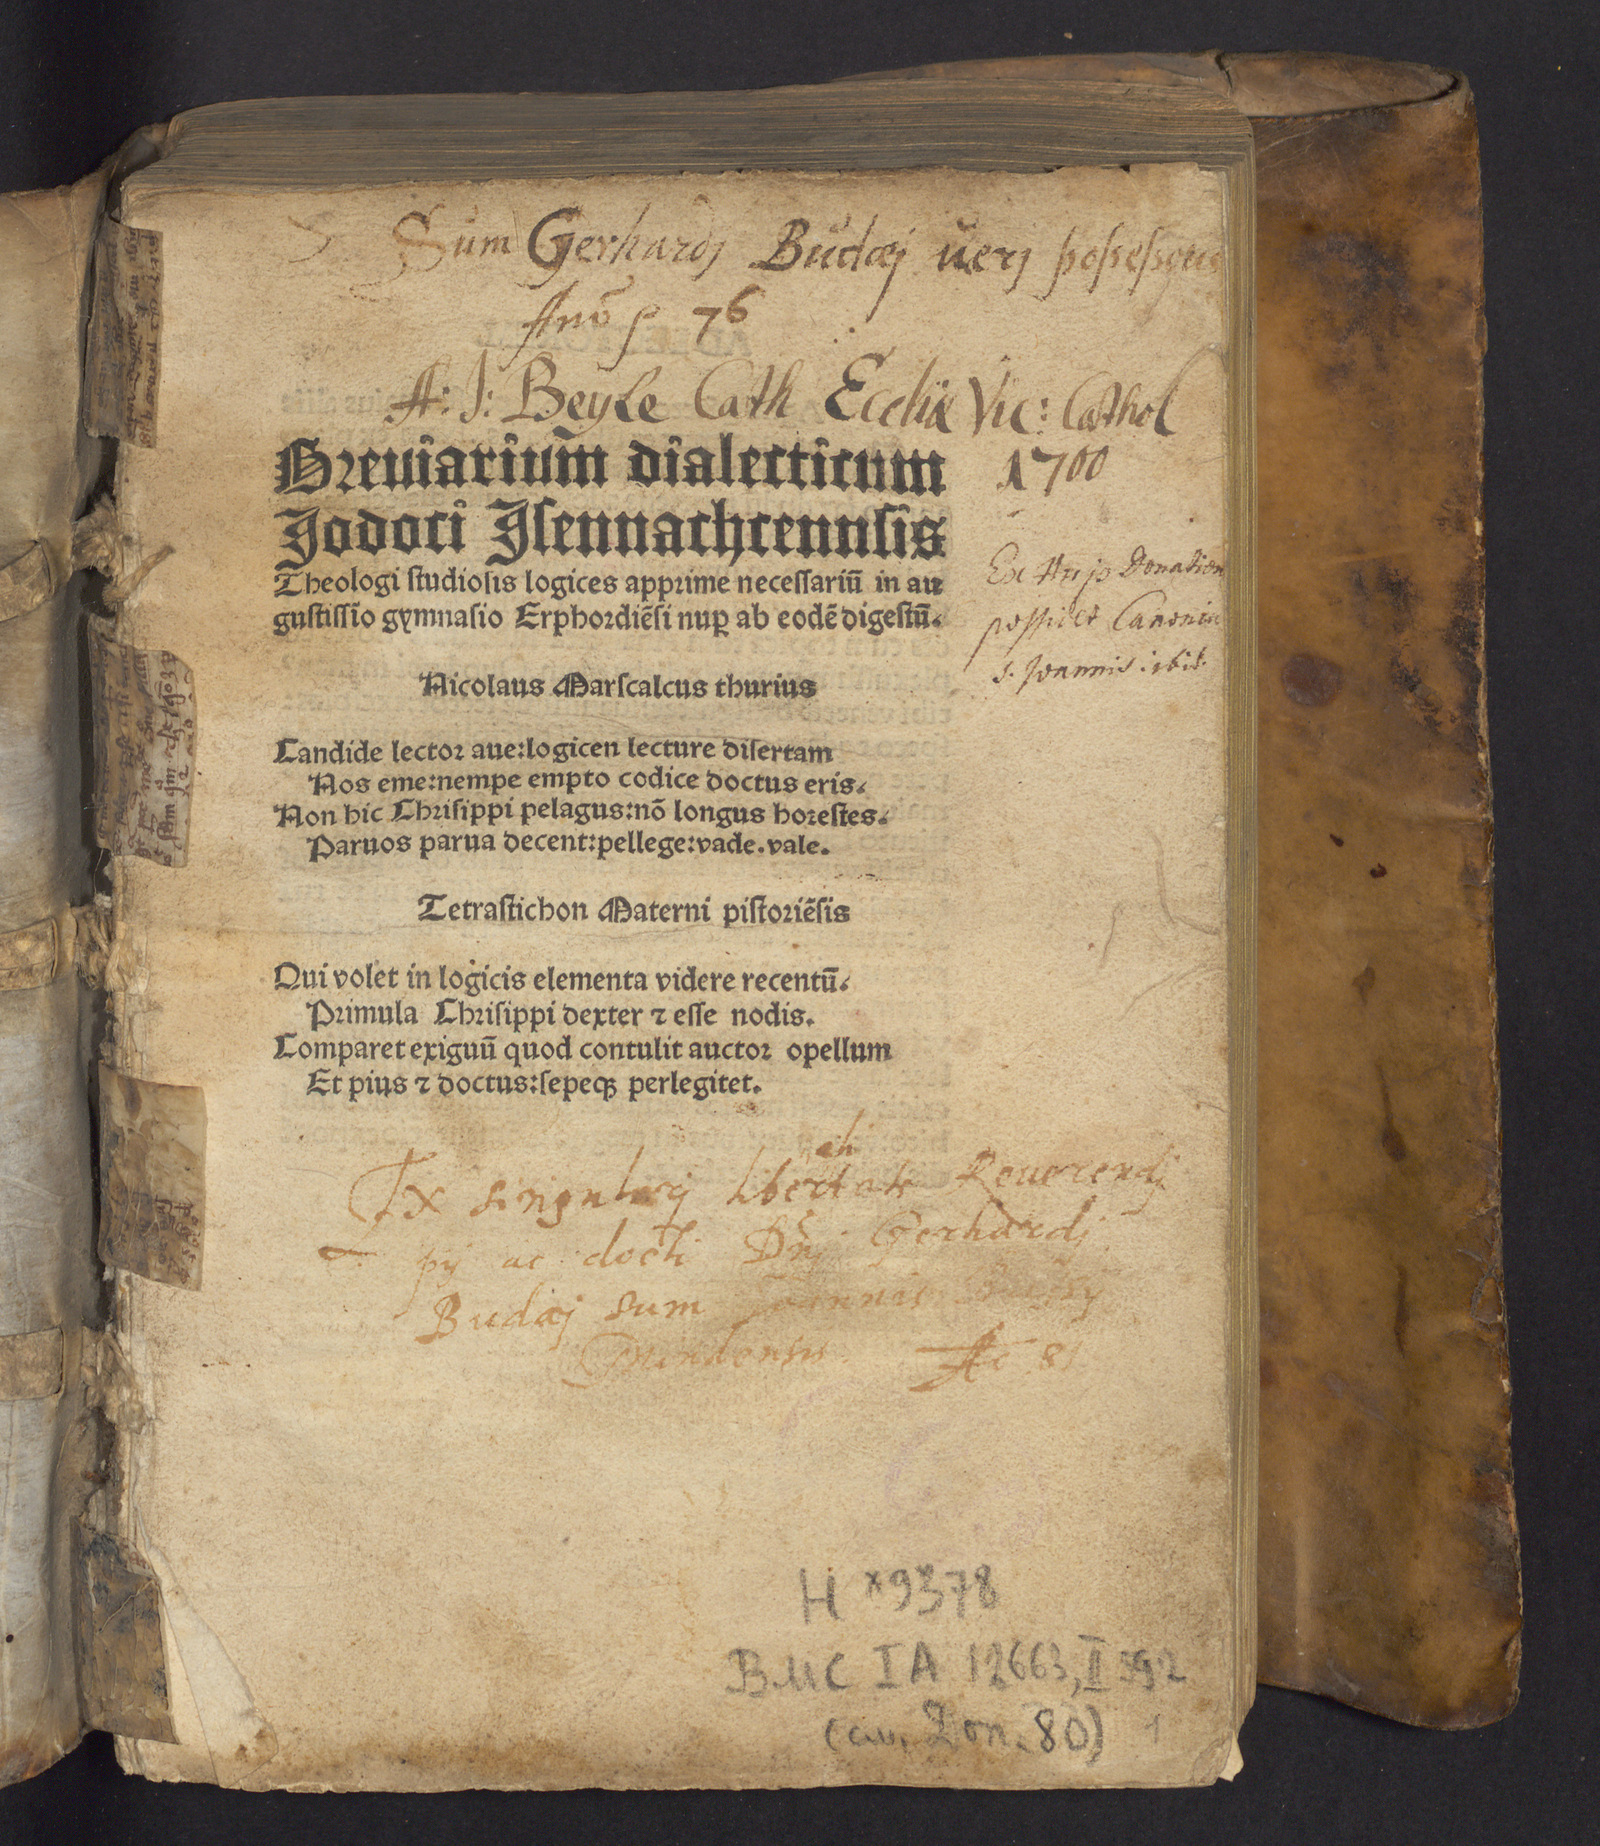 Sum Gerhardj Budæj uerj
Anō 76
A: J: Beyle Cath Eccliæ Vic: Cathol
1700
Breuiariūm dialecticum
Jodoci Jsennachcennsis
Theologi studiosis logices apprime necessariū in au
gustissīo gymnasio Erphordiēsi nuꝑ ab eodē digestū.
Ex Donation
possidet Canonic
s. Joannis. ibid.
Nicolaus Marscalcus thurius
Candide lector aue:logicen lecture disertam
Nos eme:nempe empto codice doctus eris.
Non hic Chrisippi pelagus:nō longus horestes.
Paruos parua decent:pellege:vade.vale.
Tetrastichon Materni pistoriēsis
Qui volet in logicis elementa videre recentū.
Primula Chrisippi dexter ⁊ esse nodis.
Comparet exiguū quod contulit auctor opellum
Et pius ⁊ doctus:sepeqꝫ perlegitet.
Ex singularj Reuerendj
pij ac docti Dnj Gerhardj
Budæj sum Joannis
Mindensis. Aō 81
H *9378
BMC IA 12663, II 592
80) 1